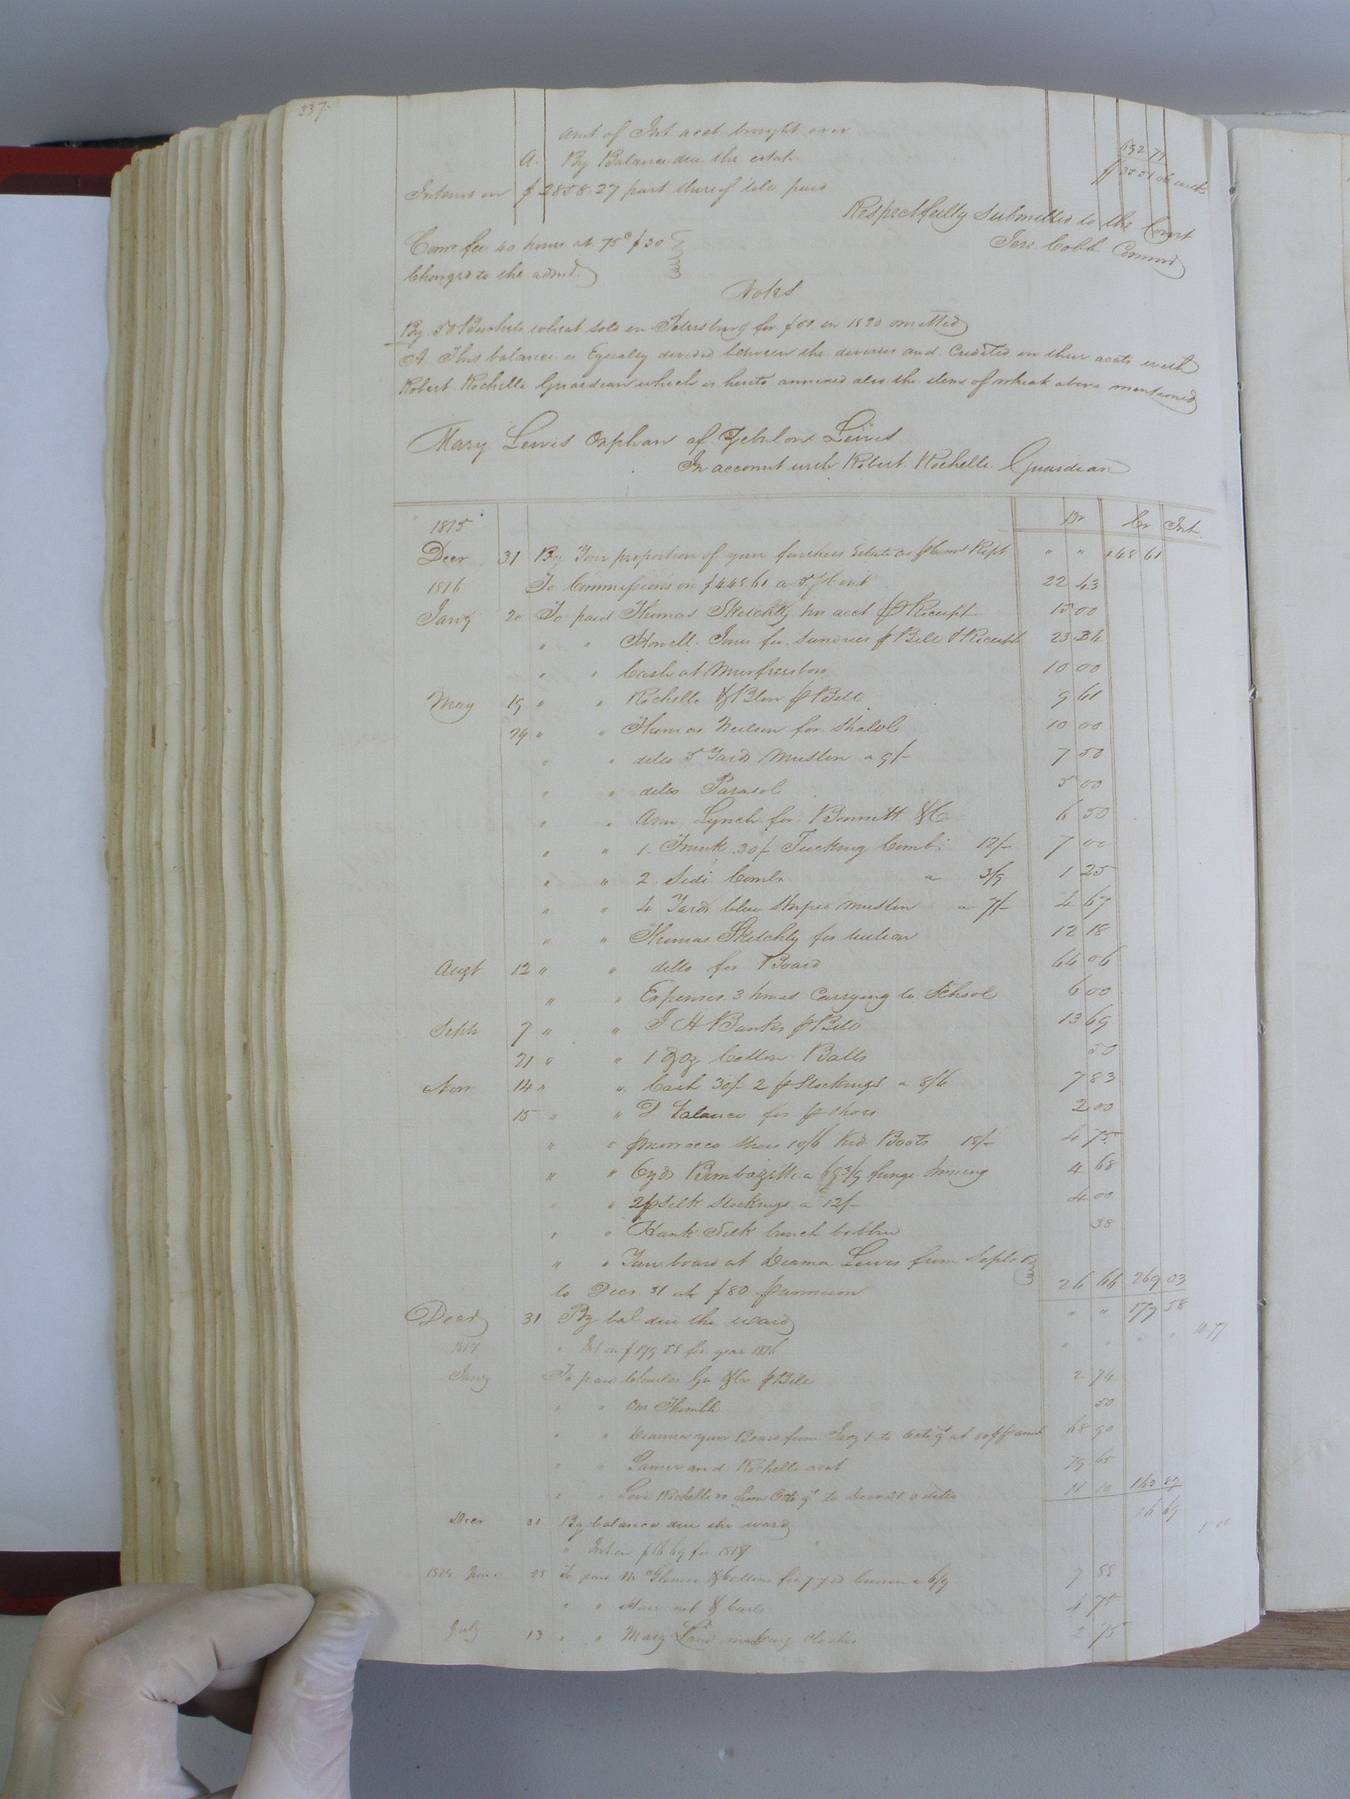 337
amt of Int acct brought over 692 71
A. By Balance due the estate
Interest on $2858.27 part thereof till paid
Respectfully Submitted to the Court
Comr fee 40 hours at 75c $30
Jere Cobb Commr
Charged to the admr
Notes
By 50 Bushels wheat sold in Petersburg for $50 in 1820 omitted
A This balance is Equally divided between the devisees and Credited in their accts with
Robert Rochelle Guardian which is hereto annexed also the item of wheat above mentioned
Mary Lewis Orphan of Zebulon Lewis
In account with Robert Rochelle Guardian
1815 Dr Cr Int.
Decr 31 By Your proportion of your fathers Estate as $ Recpt " " 448 61
1816 To Commissions on $448 61 a 5 $ cent 22 43
Jany 20 To paid Thomas Sketchly his acct $ Receipt 15 00
" " Howell Jones for sundries $ Bill & Receipt 23 34
" " Cash at Murfreesboro 10 00
May 19 " " Rochelle & Blow $ Bill 9 61
29 " " Thomas Neilson for Shawl 10 00
" " ditto 5 Yards Muslin a 9/- 7 50
" " ditto Parasol 5 00
" " Ann Lynch for Bonnett &C 6 50
" " 1 Trunk 30/- Tucking Comb 12/- 7 00
" " 2 Side Combs a 3/9 1 25
" " 4 Yards blue stripe muslin a 7/- 4 67
" " Thomas Sketchly for tuition 12 18
Augt 12 " " ditto for Board 64 06
" " Expenses 3 times Carrying to School 6 00
Septr 7 " " J H Banks $ Bill 13 69
21 " " 1 Doz Cotton Balls 50
Nov 14 " " Cash 30/- 2 pr Stockings a 8/6 7 83
15 " " for pr shoes 2 00
" " pr morocco shoes 10/6 Kid Boots 18/- 4 75
" " 6 yds Bombazette a 3/9 fringe trimming 4 68
" " 2 pr silk stockings a 12/- 4 00
" " Hank Silk bunch bobbin 38
" " Your board at Deanna Lewis from Septr
to Decr 31 at $80 pannum 26 66 269 03
Decr 31 By bal due the ward " " 179 58
1817 " Int on $179 58 for year 1816 " " " " 10 77
Jany To paid Charles & Co $ Bill 2 74
" " One Thimble 50
" " Deanna your Board from Jany 1 to Octo 9th at 68 90
" " Turner and Rochelle acct 79 65
" " Levi Rochelle do from Octo 9th to Decr 31 a ditto 11 10
Decr 31 By balance due the ward 16 69
" Int on $16 69 for 1817 1 00
June 23 To paid for 7 yd a 6/9 7 88
" " 4 75
July 13 " " Mary making clothes 2 75